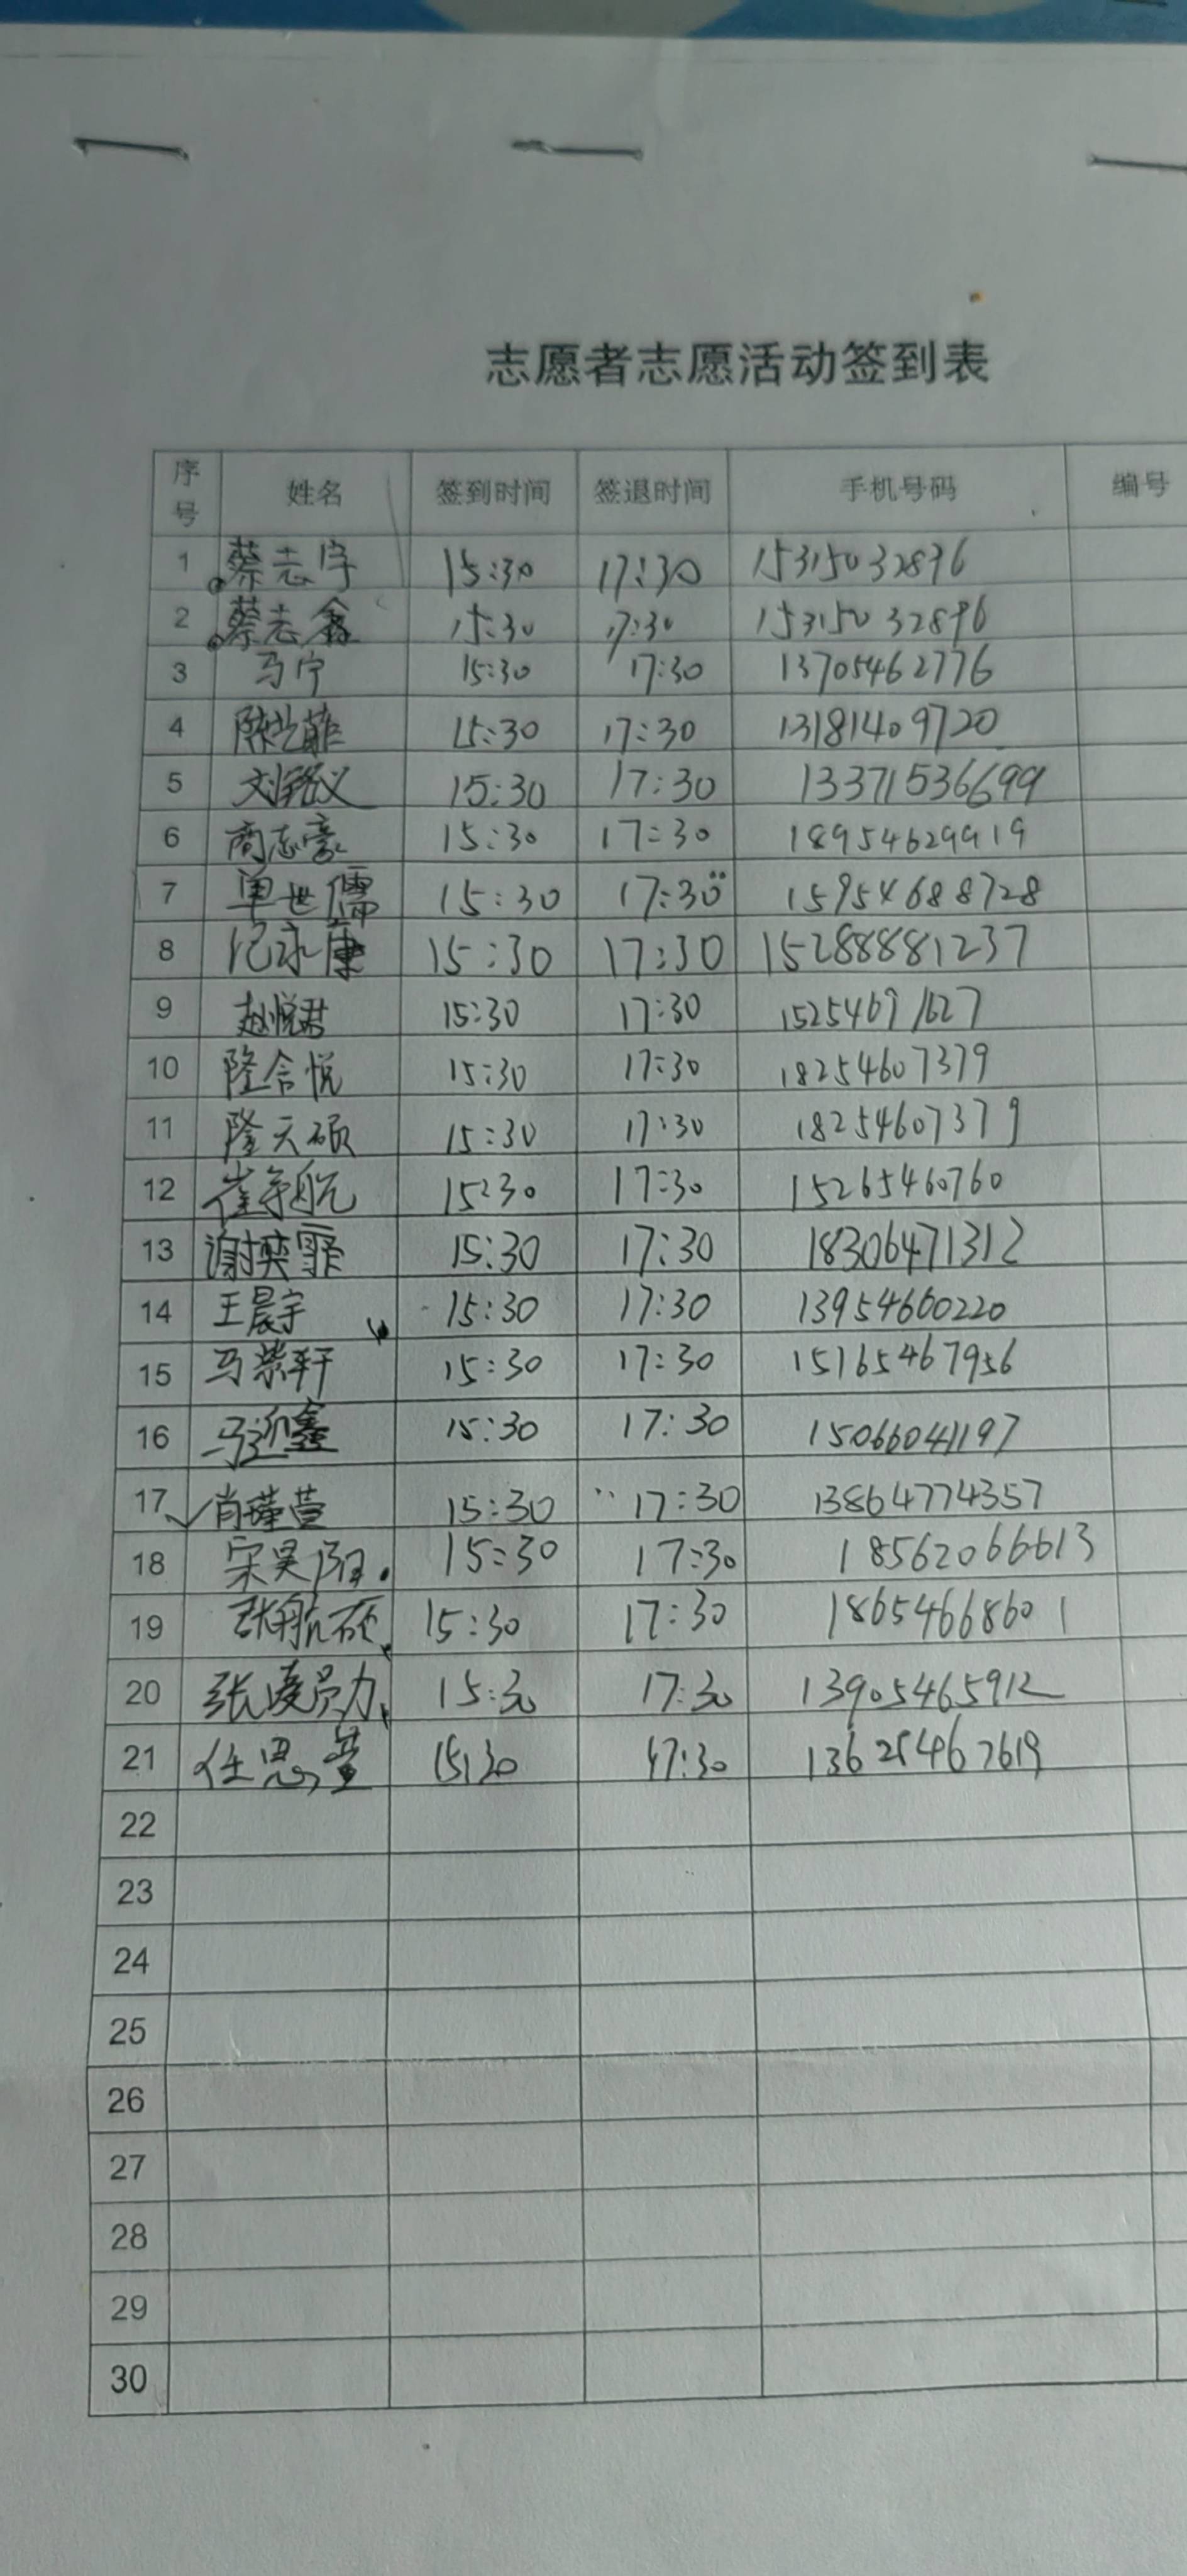 志愿者志愿活动签到表
序号 姓名 签到时间 签退时间 手机号码 编号
1 蔡志宇 15:30 17:30 15315032896
2 蔡志鑫 15:30 17:30 15315032896
3 马宁 15:30 17:30 13705462776
4 陈兰菲 15:30 17:30 13181409720
5 刘铭义 15:30 17:30 13371536699
6 商志豪 15:30 17:30 18954629919
7 单世儒 15:30 17:30 15954688728
8 纪永康 15:30 17:30 15288881237
9 赵悦君 15:30 17:30 15254691627
10 隆含悦 15:30 17:30 18254607379
11 隆天硕 15:30 17:30 18254607379
12 崔争航 15:30 17:30 15265460760
13 谢奕霏 15:30 17:30 18306471312
14 王晨宇 15:30 17:30 13954660220
15 马荣轩 15:30 17:30 15165467956
16 马迎鑫 15:30 17:30 15066041197
17 肖瑾萱 15:30 17:30 13864774357
18 宋昊阳 15:30 17:30 18562066613
19 张航硕 15:30 17:30 18654668601
20 张凌 15:30 17:30 13905465912
21 任思萱 15:30 17:30
22
23
24
25
26
27
28
29
30